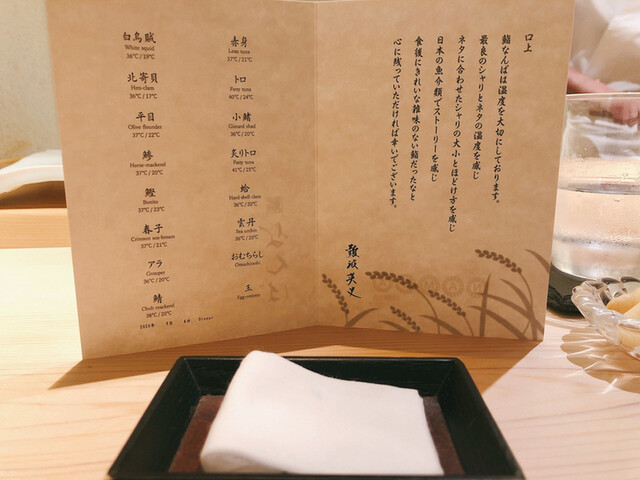 白烏賊
White squid
36℃ / 19℃
北寄貝
Hen-clam
36℃ / 17℃
平目
Olive flounder
37℃ / 22℃
鯵
Horse-mackerel
37℃ / 20℃
鰹
Bonito
37℃ / 23℃
春子
Crimson sea-bream
37℃ / 21℃
アラ
Grouper
36℃ / 20℃
鯖
Chub mackerel
36℃ / 20℃
赤身
Lean tuna
37℃ / 21℃
トロ
Fatty tuna
40℃ / 24℃
小鰭
Gizzard shad
36℃ / 20℃
炙りトロ
Fatty tuna
41℃ / 25℃
蛤
Hard-shell clam
36℃ / 20℃
雲丹
Sea urchin
36℃ / 20℃
おむちらし
Omuchirashi
玉
Egg custard
口上
鮨なんばは温度を大切にしております。
最良のシャリとネタの温度を感じ
ネタに合わせたシャリの大小とほどけ方を感じ
日本の魚介類でストーリーを感じ
食後にきれいな雑味のない鮨だったなと
心に残っていただければ幸いでございます。
難波英史